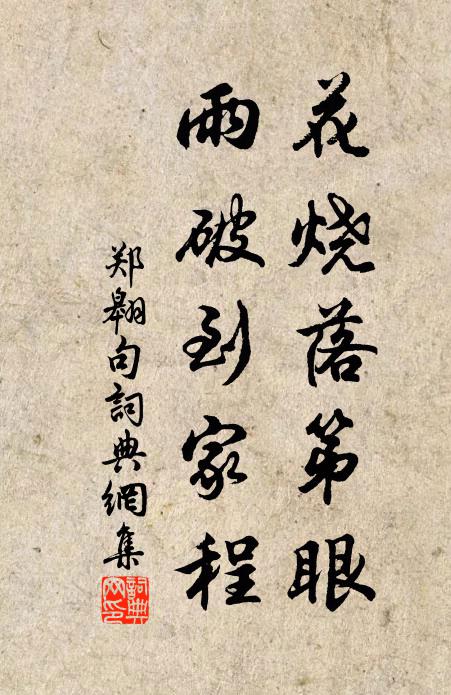 花烧落第眼
雨破到家程
郑翱句詞典網集
詞典
网印